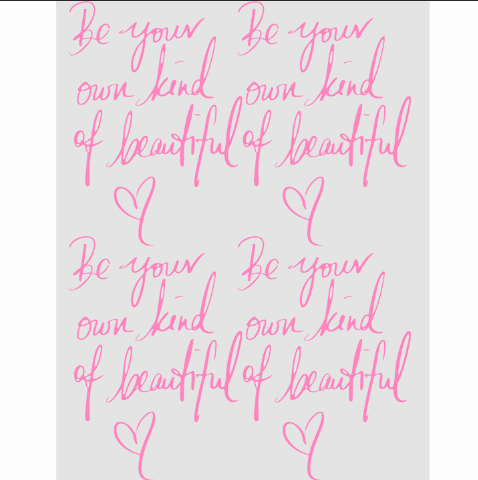 Be your
own kind
of beautiful
Be your
own kind
of beautiful
Be your
own kind
of beautiful
Be your
own kind
of beautiful